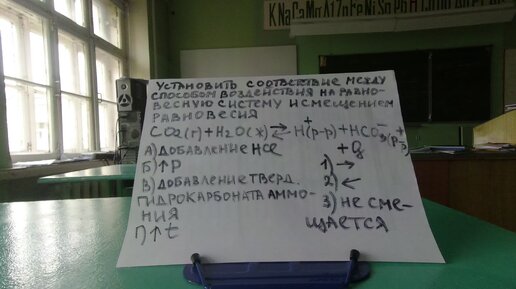 K Na Ca Mg Al Zn Fe Ni Sn Pb H
УСТАНОВИТЬ СООТВЕТСТВИЕ МЕЖДУ
СПОСОБОМ ВОЗДЕЙСТВИЯ НА РАВНО-
ВЕСНУЮ СИСТЕМУ И СМЕЩЕНИЕМ
РАВНОВЕСИЯ
CO2(г)+H2O(ж) ⇄ H+(р-р)+HCO3(р-р)
+Q
А) ДОБАВЛЕНИЕ HCl
Б) ↑P
В) ДОБАВЛЕНИЕ ТВЕРД.
ГИДРОКАРБОНАТА АММО-
НИЯ
Г) ↑t
1) →
2) ←
3) НЕ СМЕ-
ЩАЕТСЯ